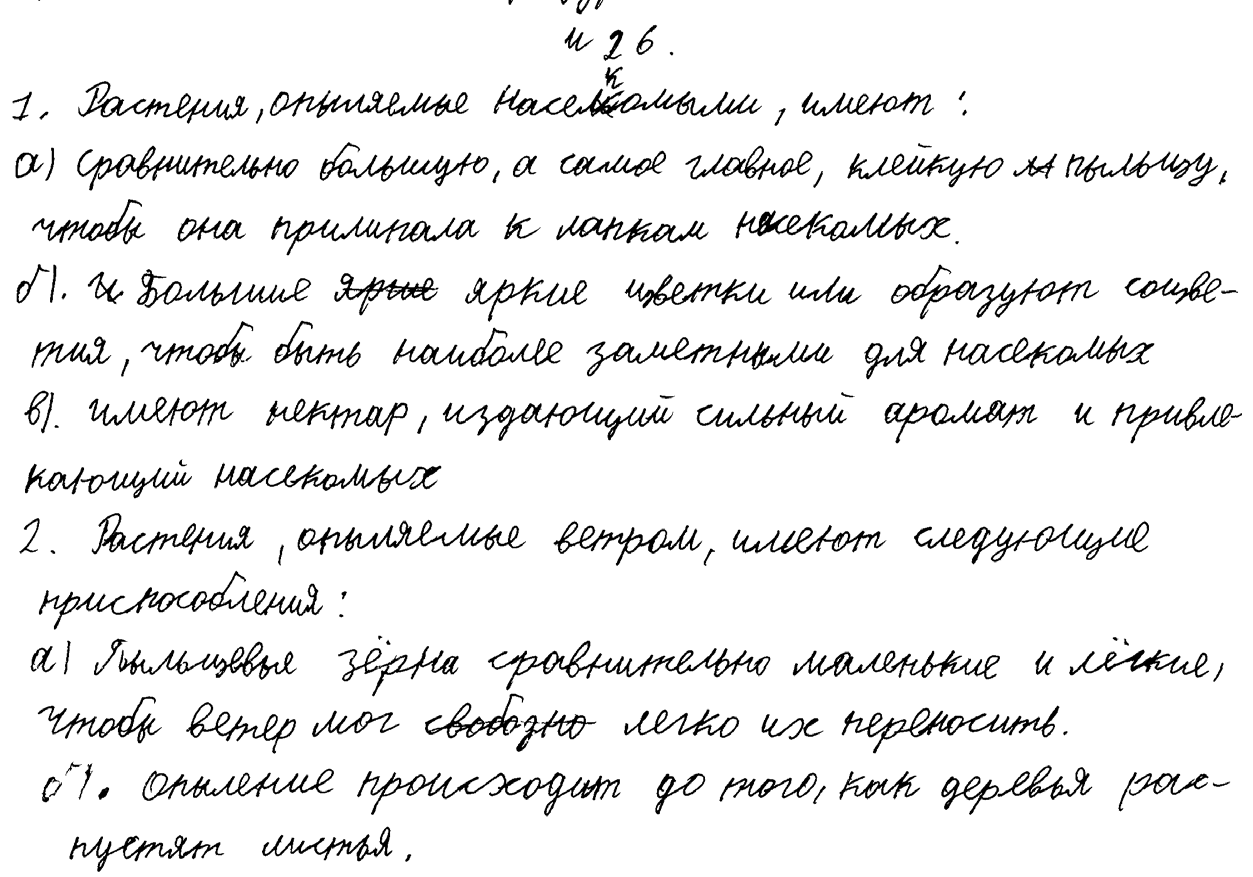 и 26.
1. Растения, опыляемые насекомыми, имеют:
а) сравнительно большую, а самое главное, клейкую пыльцу,
чтобы она прилипала к лапкам насекомых.
б). Большие яркие цветки или образуют соцве-
тия, чтобы быть наиболее заметными для насекомых
в). имеют нектар, издающий сильный аромат и привле-
кающий насекомых
2. Растения, опыляемые ветром, имеют следующие
приспособления:
а) Пыльцевые зёрна сравнительно маленькие и лёгкие,
чтобы ветер мог свободно легко их переносить.
б). Опыление происходит до того, как деревья рас-
пустят листья.